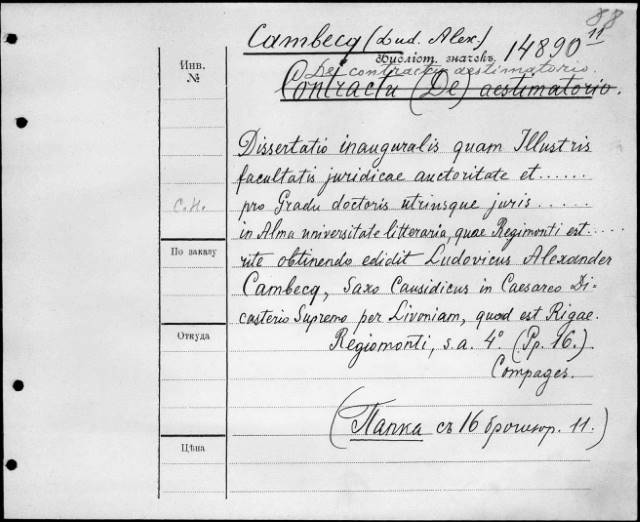 88
Cambecq (Lud. Alex.)
Библіот. значокъ 14890 11
De contractu aestimatorio.
Contractu (De) aestimatorio.
Инв.
№
Dissertatio inauguralis quam Illustris
facultatis juridicae auctoritate et......
С.Н.
pro Gradu doctoris utriusque juris......
in Alma universitate litteraria, quae Regimonti est.....
По заказу
rite obtinendo edidit Ludovicus Alexander
Cambecq, Saxo Causidicus in Caesareo Di-
casterio Supremo per Livoniam, quod est Rigae.
Откуда
Regiomonti, s.a. 4° (Pp. 16.)
Compages.
(Папка съ 16 брошюр. 11.)
Цѣна